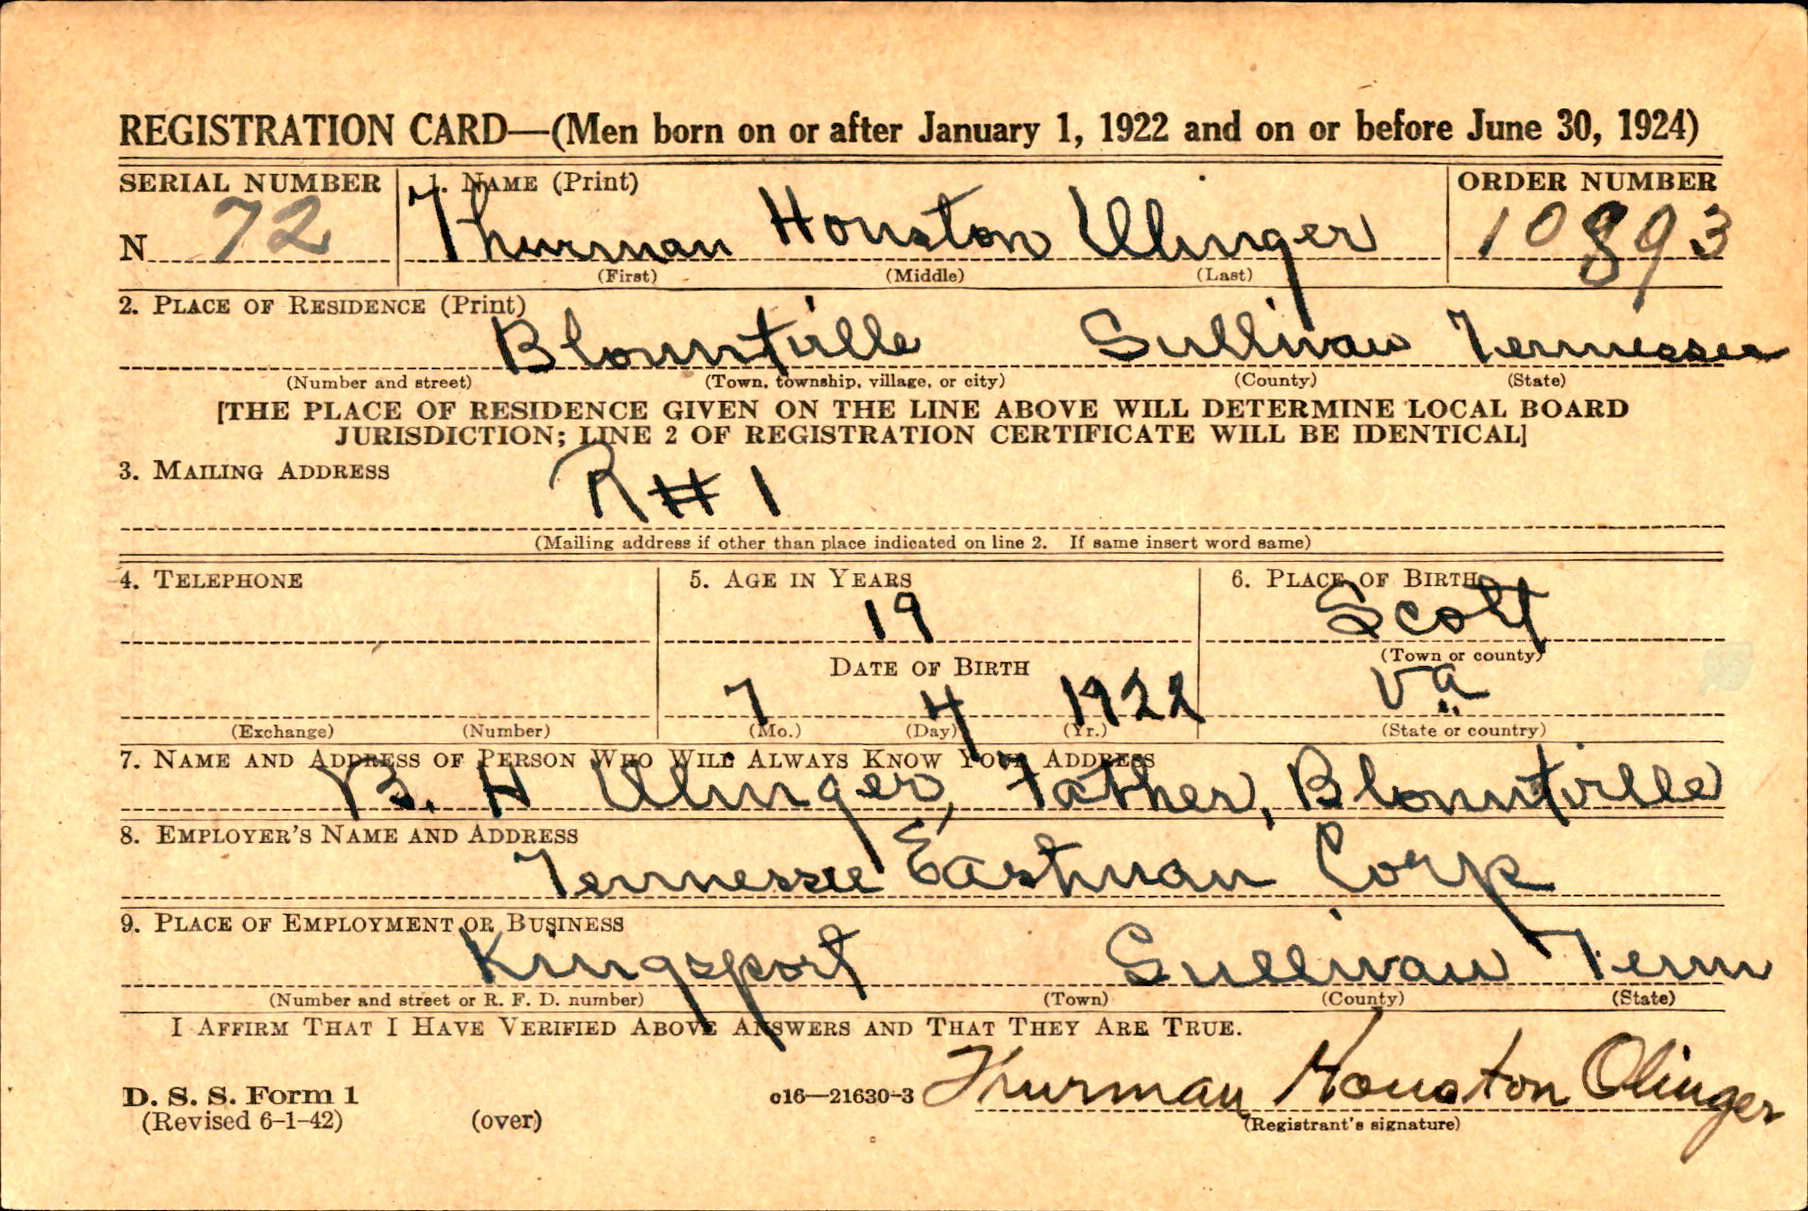 REGISTRATION CARD—(Men born on or after January 1, 1922 and on or before June 30, 1924)
SERIAL NUMBER 1. NAME (Print) ORDER NUMBER
N 72 Thurman Houston Olinger 10893
(First) (Middle) (Last)
2. PLACE OF RESIDENCE (Print)
Blountville Sullivan Tennessee
(Number and street) (Town, township, village, or city) (County) (State)
[THE PLACE OF RESIDENCE GIVEN ON THE LINE ABOVE WILL DETERMINE LOCAL BOARD
JURISDICTION; LINE 2 OF REGISTRATION CERTIFICATE WILL BE IDENTICAL]
3. MAILING ADDRESS
R # 1
(Mailing address if other than place indicated on line 2. If same insert word same)
4. TELEPHONE 5. AGE IN YEARS 6. PLACE OF BIRTH
19 Scott
DATE OF BIRTH (Town or county)
7 4 1922 Va
(Exchange) (Number) (Mo.) (Day) (Yr.) (State or country)
7. NAME AND ADDRESS OF PERSON WHO WILL ALWAYS KNOW YOUR ADDRESS
B. H Olinger, Father, Blountville
8. EMPLOYER'S NAME AND ADDRESS
Tennessee Eastman Corp
9. PLACE OF EMPLOYMENT OR BUSINESS
Kingsport Sullivan Tenn
(Number and street or R. F. D. number) (Town) (County) (State)
I AFFIRM THAT I HAVE VERIFIED ABOVE ANSWERS AND THAT THEY ARE TRUE.
D. S. S. Form 1 c16—21630-3 Thurman Houston Olinger
(Revised 6-1-42) (over) (Registrant's signature)